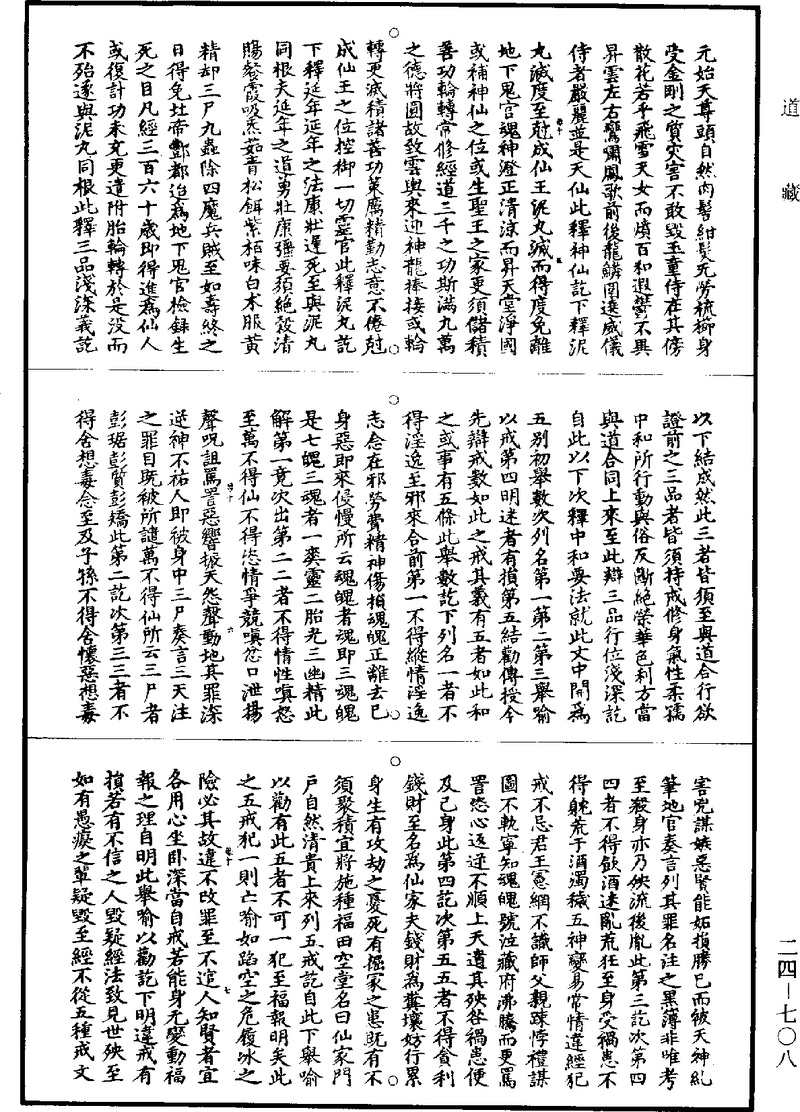 道藏
元始天尊頭自然肉髻紺髮无勞梳櫛身
受金剛之質灾害不敢毀玉童侍在其傍
散花若乎飛雪天女而燌百和遐鬱不異
昇雲左右鸞嘯鳳歌前後龍鱗罔遶威儀
侍者嚴麗並是天仙此釋神仙訖下釋泥
丸滅度至尅成仙王泥丸滅而得度免離
地下鬼官魂神澄正清涼而昇天堂淨國
或補神仙之位或生聖王之家更須儲積
善功輪轉常修經道三千之功斯滿九萬
之德將圓故致雲輿來迎神龍捧接或輪
轉更滅積諸善功策厲精勤志意不倦尅
成仙王之位控御一切靈官此釋泥丸訖
下釋延年延年之法康壯遲死至與泥丸
同根夫延年之道勇壯康彊要須絕穀清
腸餐霞吸炁茹青松餌紫栢味白术服黃
精却三尸九蟲除四魔兵賊至如壽終之
日得免北帝酆都迨為地下鬼官檢錄生
死之目凡經三百六十歲即得進為仙人
或復計功未充更遣附胎輪轉於是没而
不殆遂與泥丸同根此釋三品淺深義訖
以下結成然此三者皆須至與道合行欲
證前之三品者皆須持戒修身氣性柔孺
中和所行動與俗反斷絕榮華色利方當
與道合同上來至此辯三品行位淺深訖
自此以下次釋中和要法就此文中開為
五別初舉數次列名第一第二第三舉喻
以戒第四明迷者有損第五結勸傳授今
先辯戒數如此之戒其義有五者如此和
之或事有五條此舉數訖下列名一者不
得淫逸至邪來合前第一不得縱情淫逸
志念在邪勞費精神傷損魂魄正離去已
身惡即來侵慢所云魂魄者魂即三魂魄
是七魄三魂者一爽靈二胎光三幽精此
解第一竟次出第二二者不得情性嗔怒
至萬不得仙不得恣情爭競嗔忿口泄揚
聲呪詛罵詈惡響振天怨聲動地其罪深
逆神不祐人即被身中三尸奏言三天注
之罪目既被所譴萬不得仙所云三尸者
彭琚彭質彭矯此第二訖次第三三者不
得舍想毒念至及子孫不得舍懷惡想毒
害兇謀嫉惡賢能妬損勝已而被天神糺
筆地官奏言列其罪名注之黑簿非唯考
至殺身亦乃殃流後胤此第三訖次第四
四者不得飲酒迷亂荒狂至身受禍患不
得躭荒于酒濁穢五神變易常情違經犯
戒不忌君王憲網不識師父親踈悖禮謀
圖不軌寧知魂魄號泣藏府沸騰而更罵
詈恣心返逆不順上天遺其殃咎禍患便
及己身此第四訖次第五五者不得貪利
錢財至名為仙家夫錢財為糞壤妨行累
身生有攻劫之憂死有掘冢之患既有不
須聚積宜將施種福田空堂名曰仙家門
戶自然清貴上來列五戒訖自此下舉喻
以勸有此五者不可一犯至福報明矣此
之五戒犯一則亡喻如蹈空之危履冰之
險必其故違不改罪至不逭人知賢者宜
各用心坐卧深當自戒若能身无變動福
報之理自明此舉喻以勸訖下明違戒有
損若有不信之人毀疑經法致見世殃至
如有愚癡之輩疑毀至經不從五種戒文
二四—七〇八